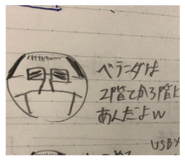 ベランダは
2階でか3階に
あんだよw
USBメ